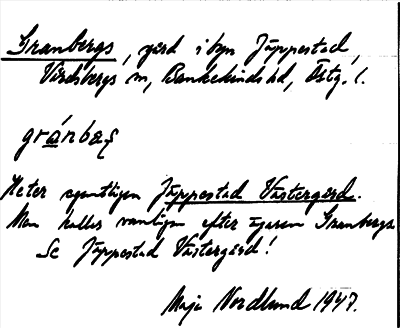 Granbergs, gård i byn Jäppestad,
Vårdsbergs sn, Bankekinds hd, Östg. l.
gránbæʃ
Heter egentligen Jäppestad Västergård.
Man kallas vanligen efter ägaren Granbergs.
Se Jäppestad Västergård!
Maja Nordlund 1947.